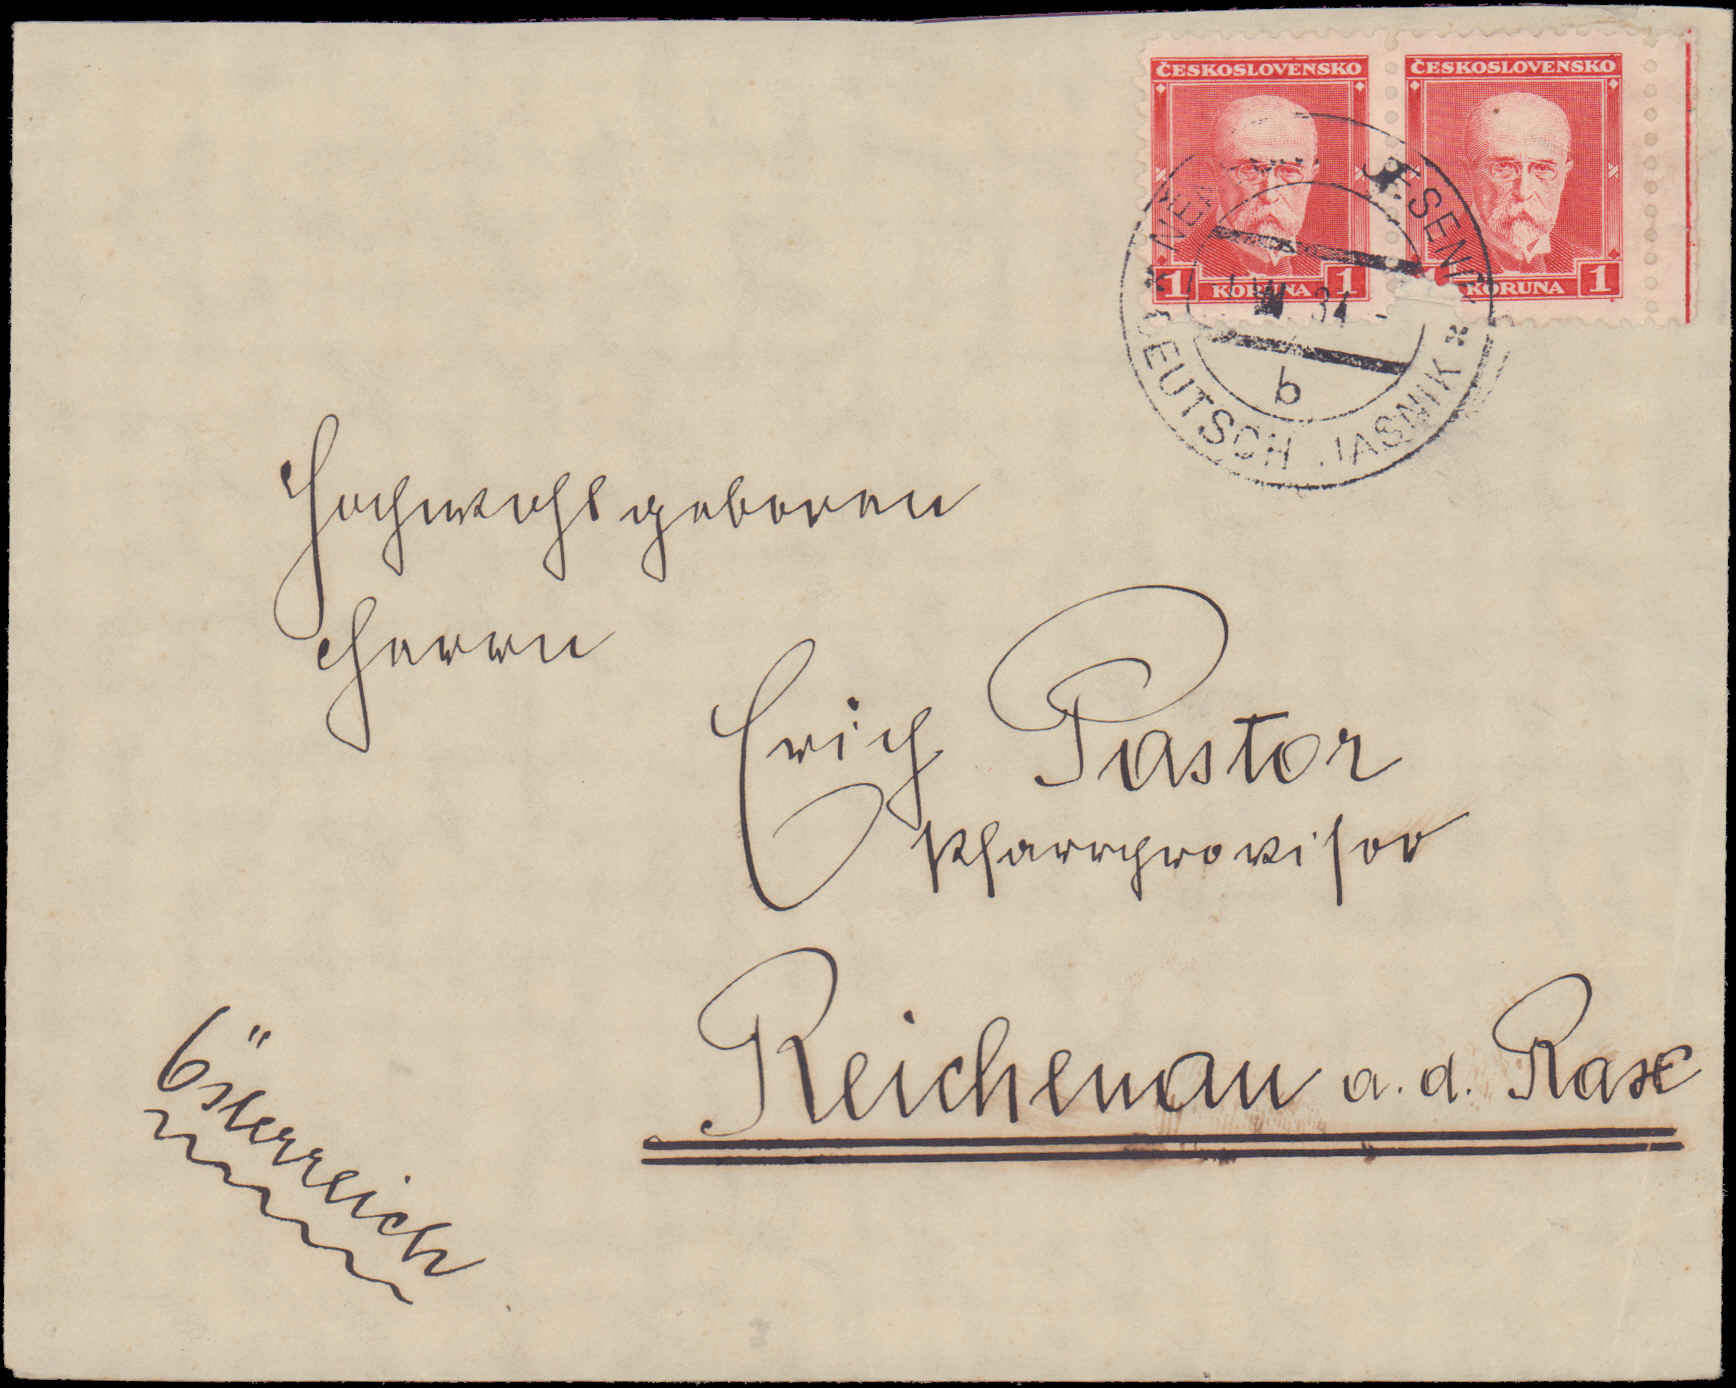 ČESKOSLOVENSKO ČESKOSLOVENSKO
1 KORUNA 1 KORUNA 1
JESENÍK
34
b
DEUTSCH JASNIK
Hochwohlgeboren
Herrn
Erich Pastor
Pfarrprovisor
Reichenau a. d. Rax
Österreich